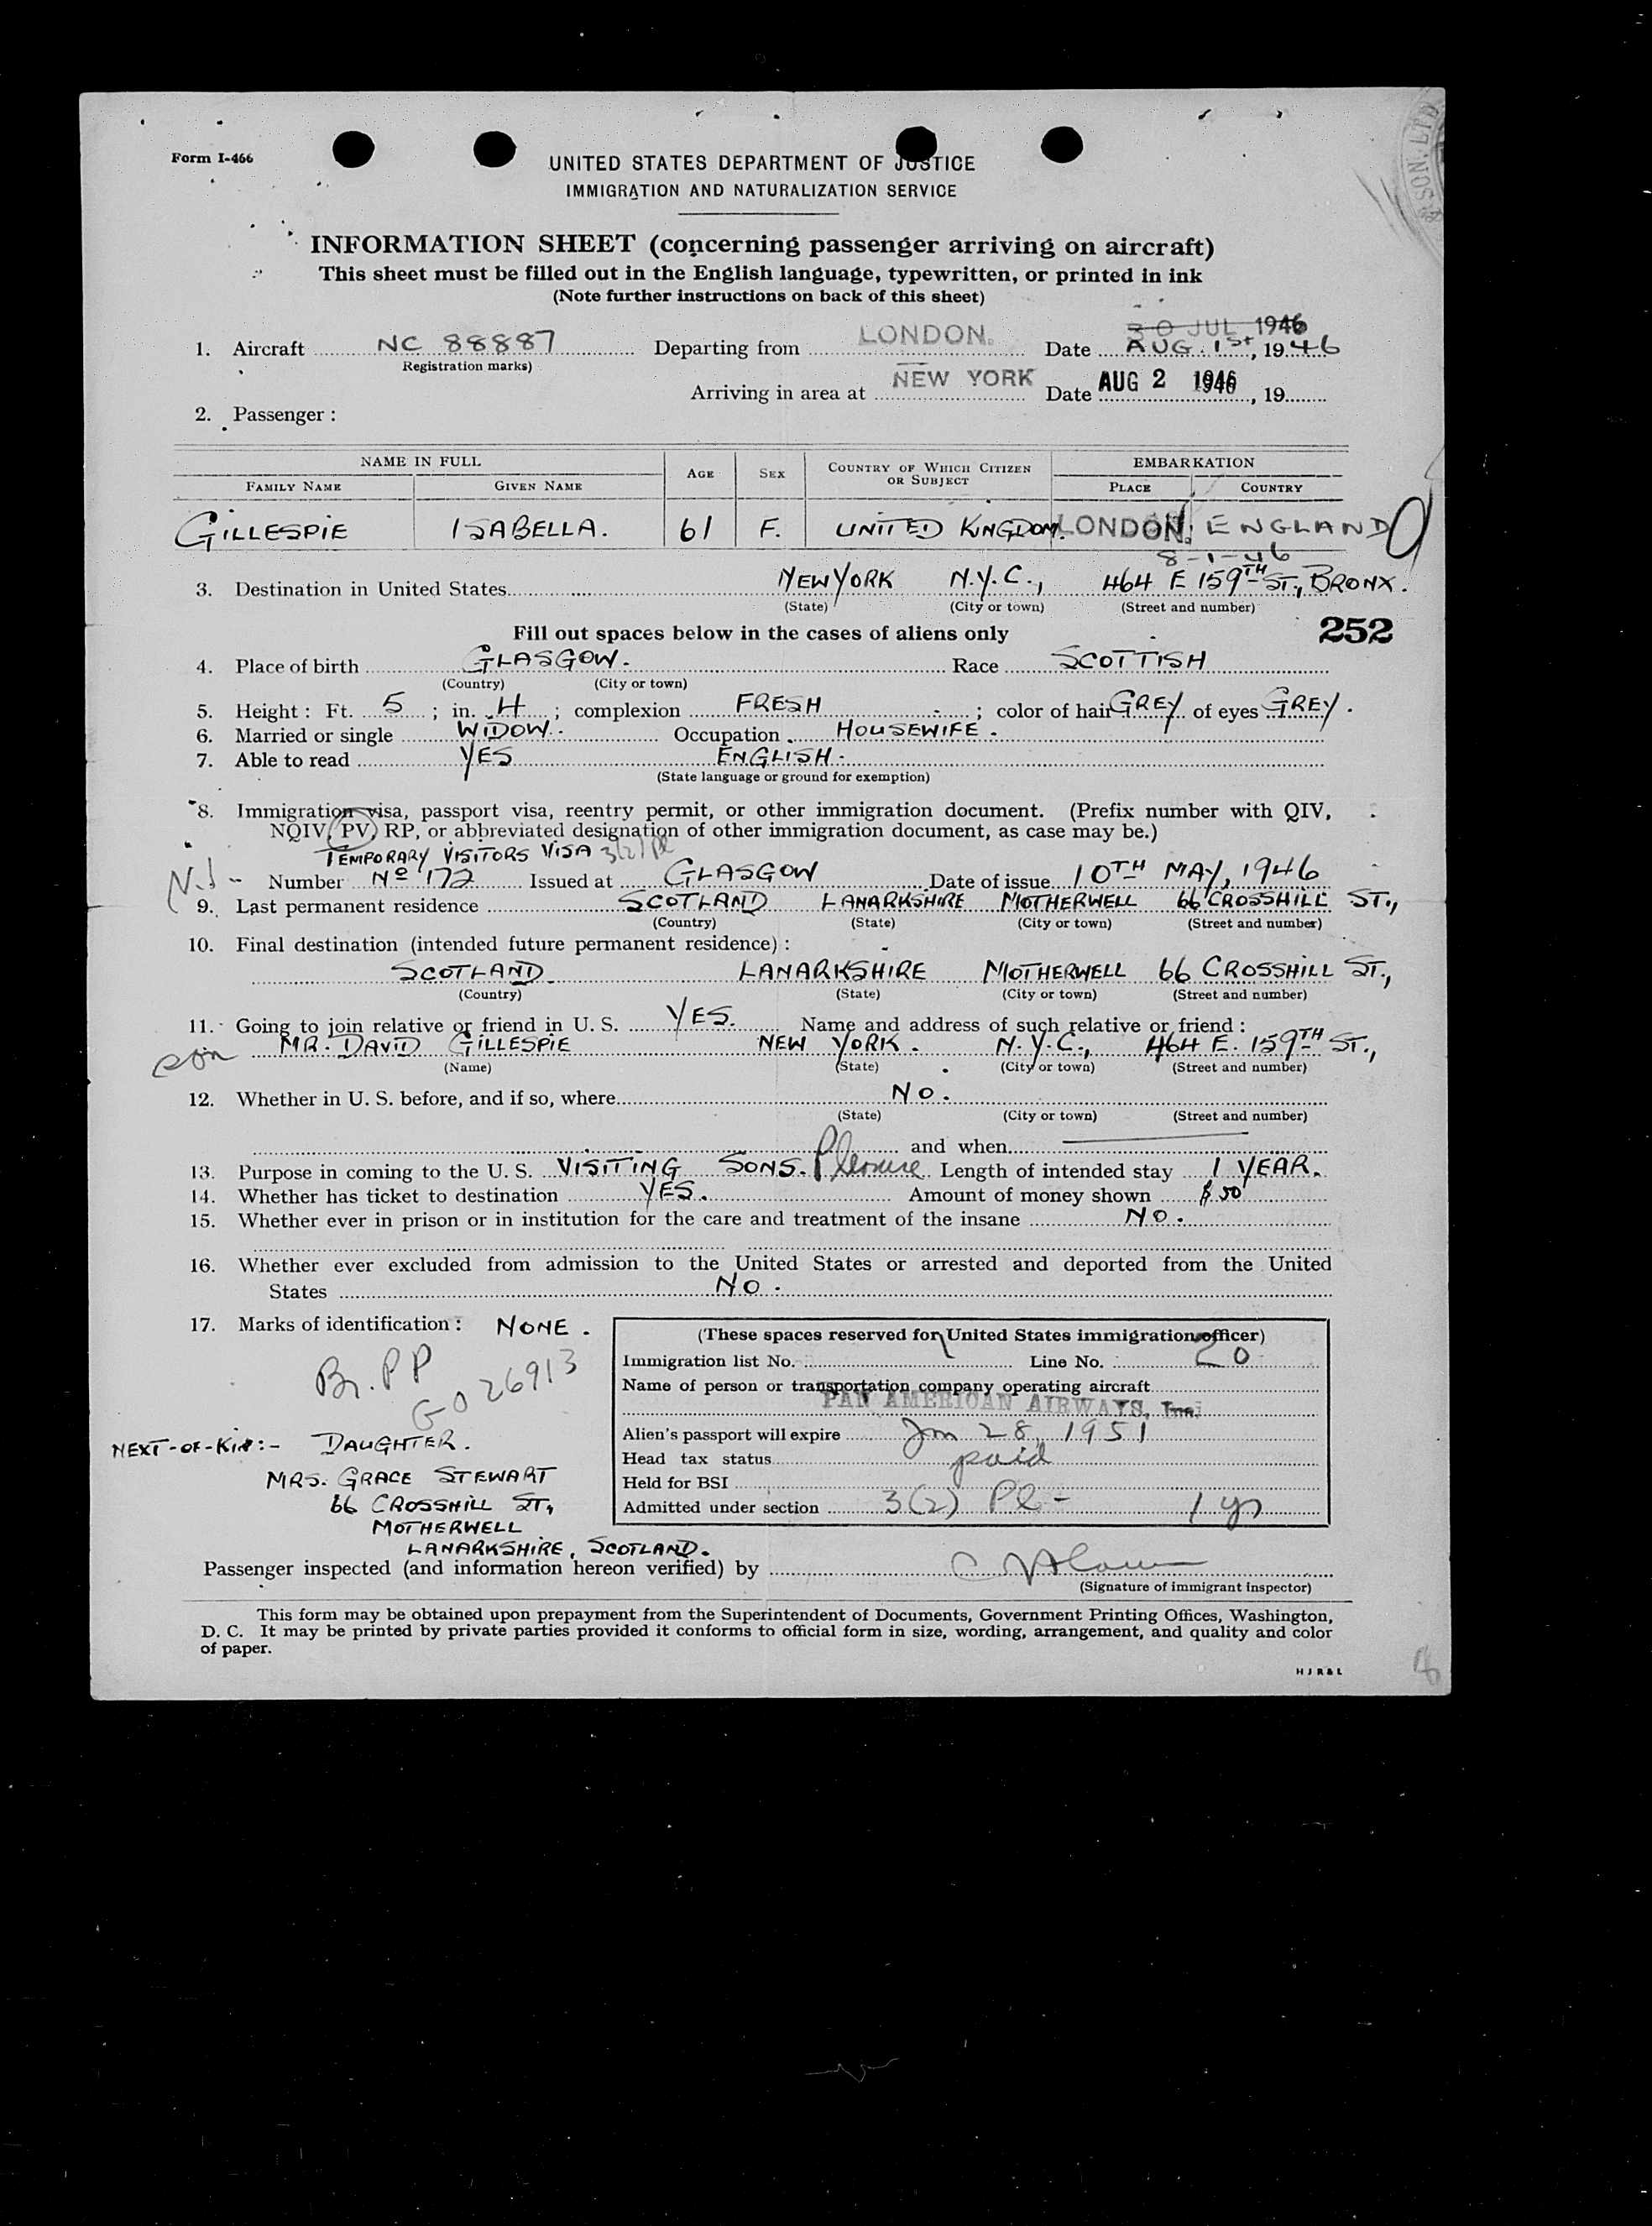 SON. LTD
Form I-466
UNITED STATES DEPARTMENT OF JUSTICE
IMMIGRATION AND NATURALIZATION SERVICE
INFORMATION SHEET (concerning passenger arriving on aircraft)
This sheet must be filled out in the English language, typewritten, or printed in ink
(Note further instructions on back of this sheet)
30 JUL 1946
1. Aircraft NC 88887 Departing from LONDON. Date AUG. 1st, 1946
(Registration marks)
Arriving in area at NEW YORK Date AUG 2 1946, 19
2. Passenger :
NAME IN FULL AGE SEX COUNTRY OF WHICH CITIZEN OR SUBJECT EMBARKATION
FAMILY NAME GIVEN NAME PLACE COUNTRY
GILLESPIE ISABELLA. 61 F. UNITED KINGDOM. LONDON. ENGLAND
8-1-46
3. Destination in United States NEW YORK N.Y.C., 464 E 159TH ST., BRONX.
(State) (City or town) (Street and number)
Fill out spaces below in the cases of aliens only 252
4. Place of birth GLASGOW. Race SCOTTISH
(Country) (City or town)
5. Height : Ft. 5 ; in. 4 ; complexion FRESH ; color of hair GREY of eyes GREY.
6. Married or single WIDOW. Occupation HOUSEWIFE.
7. Able to read YES ENGLISH.
(State language or ground for exemption)
8. Immigration visa, passport visa, reentry permit, or other immigration document. (Prefix number with QIV,
NQIV, PV, RP, or abbreviated designation of other immigration document, as case may be.)
TEMPORARY VISITORS VISA 3(2) Pl
Number Nº 172 Issued at GLASGOW Date of issue 10TH MAY, 1946
9. Last permanent residence SCOTLAND LANARKSHIRE MOTHERWELL 66 CROSSHILL ST.,
(Country) (State) (City or town) (Street and number)
10. Final destination (intended future permanent residence) :
SCOTLAND LANARKSHIRE MOTHERWELL 66 CROSSHILL ST.,
(Country) (State) (City or town) (Street and number)
11. Going to join relative or friend in U. S. YES. Name and address of such relative or friend :
son MR. DAVID GILLESPIE NEW YORK. N.Y.C., 464 E. 159TH ST.,
(Name) (State) (City or town) (Street and number)
12. Whether in U. S. before, and if so, where NO.
(State) (City or town) (Street and number)
and when
13. Purpose in coming to the U. S. VISITING SONS. Pleasure Length of intended stay 1 YEAR.
14. Whether has ticket to destination YES. Amount of money shown $50
15. Whether ever in prison or in institution for the care and treatment of the insane NO.
16. Whether ever excluded from admission to the United States or arrested and deported from the United
States NO.
17. Marks of identification : NONE.
Br. PP
G026913
NEXT-OF-KIN:- DAUGHTER.
MRS. GRACE STEWART
66 CROSSHILL ST,
MOTHERWELL
LANARKSHIRE, SCOTLAND.
(These spaces reserved for United States immigration officer)
Immigration list No. Line No. 20
Name of person or transportation company operating aircraft
PAN AMERICAN AIRWAYS, Inc.
Alien's passport will expire Jan 28, 1951
Head tax status paid
Held for BSI
Admitted under section 3(2) Pl - 1 yr
Passenger inspected (and information hereon verified) by
(Signature of immigrant inspector)
This form may be obtained upon prepayment from the Superintendent of Documents, Government Printing Offices, Washington,
D. C. It may be printed by private parties provided it conforms to official form in size, wording, arrangement, and quality and color
of paper.
H J R & L